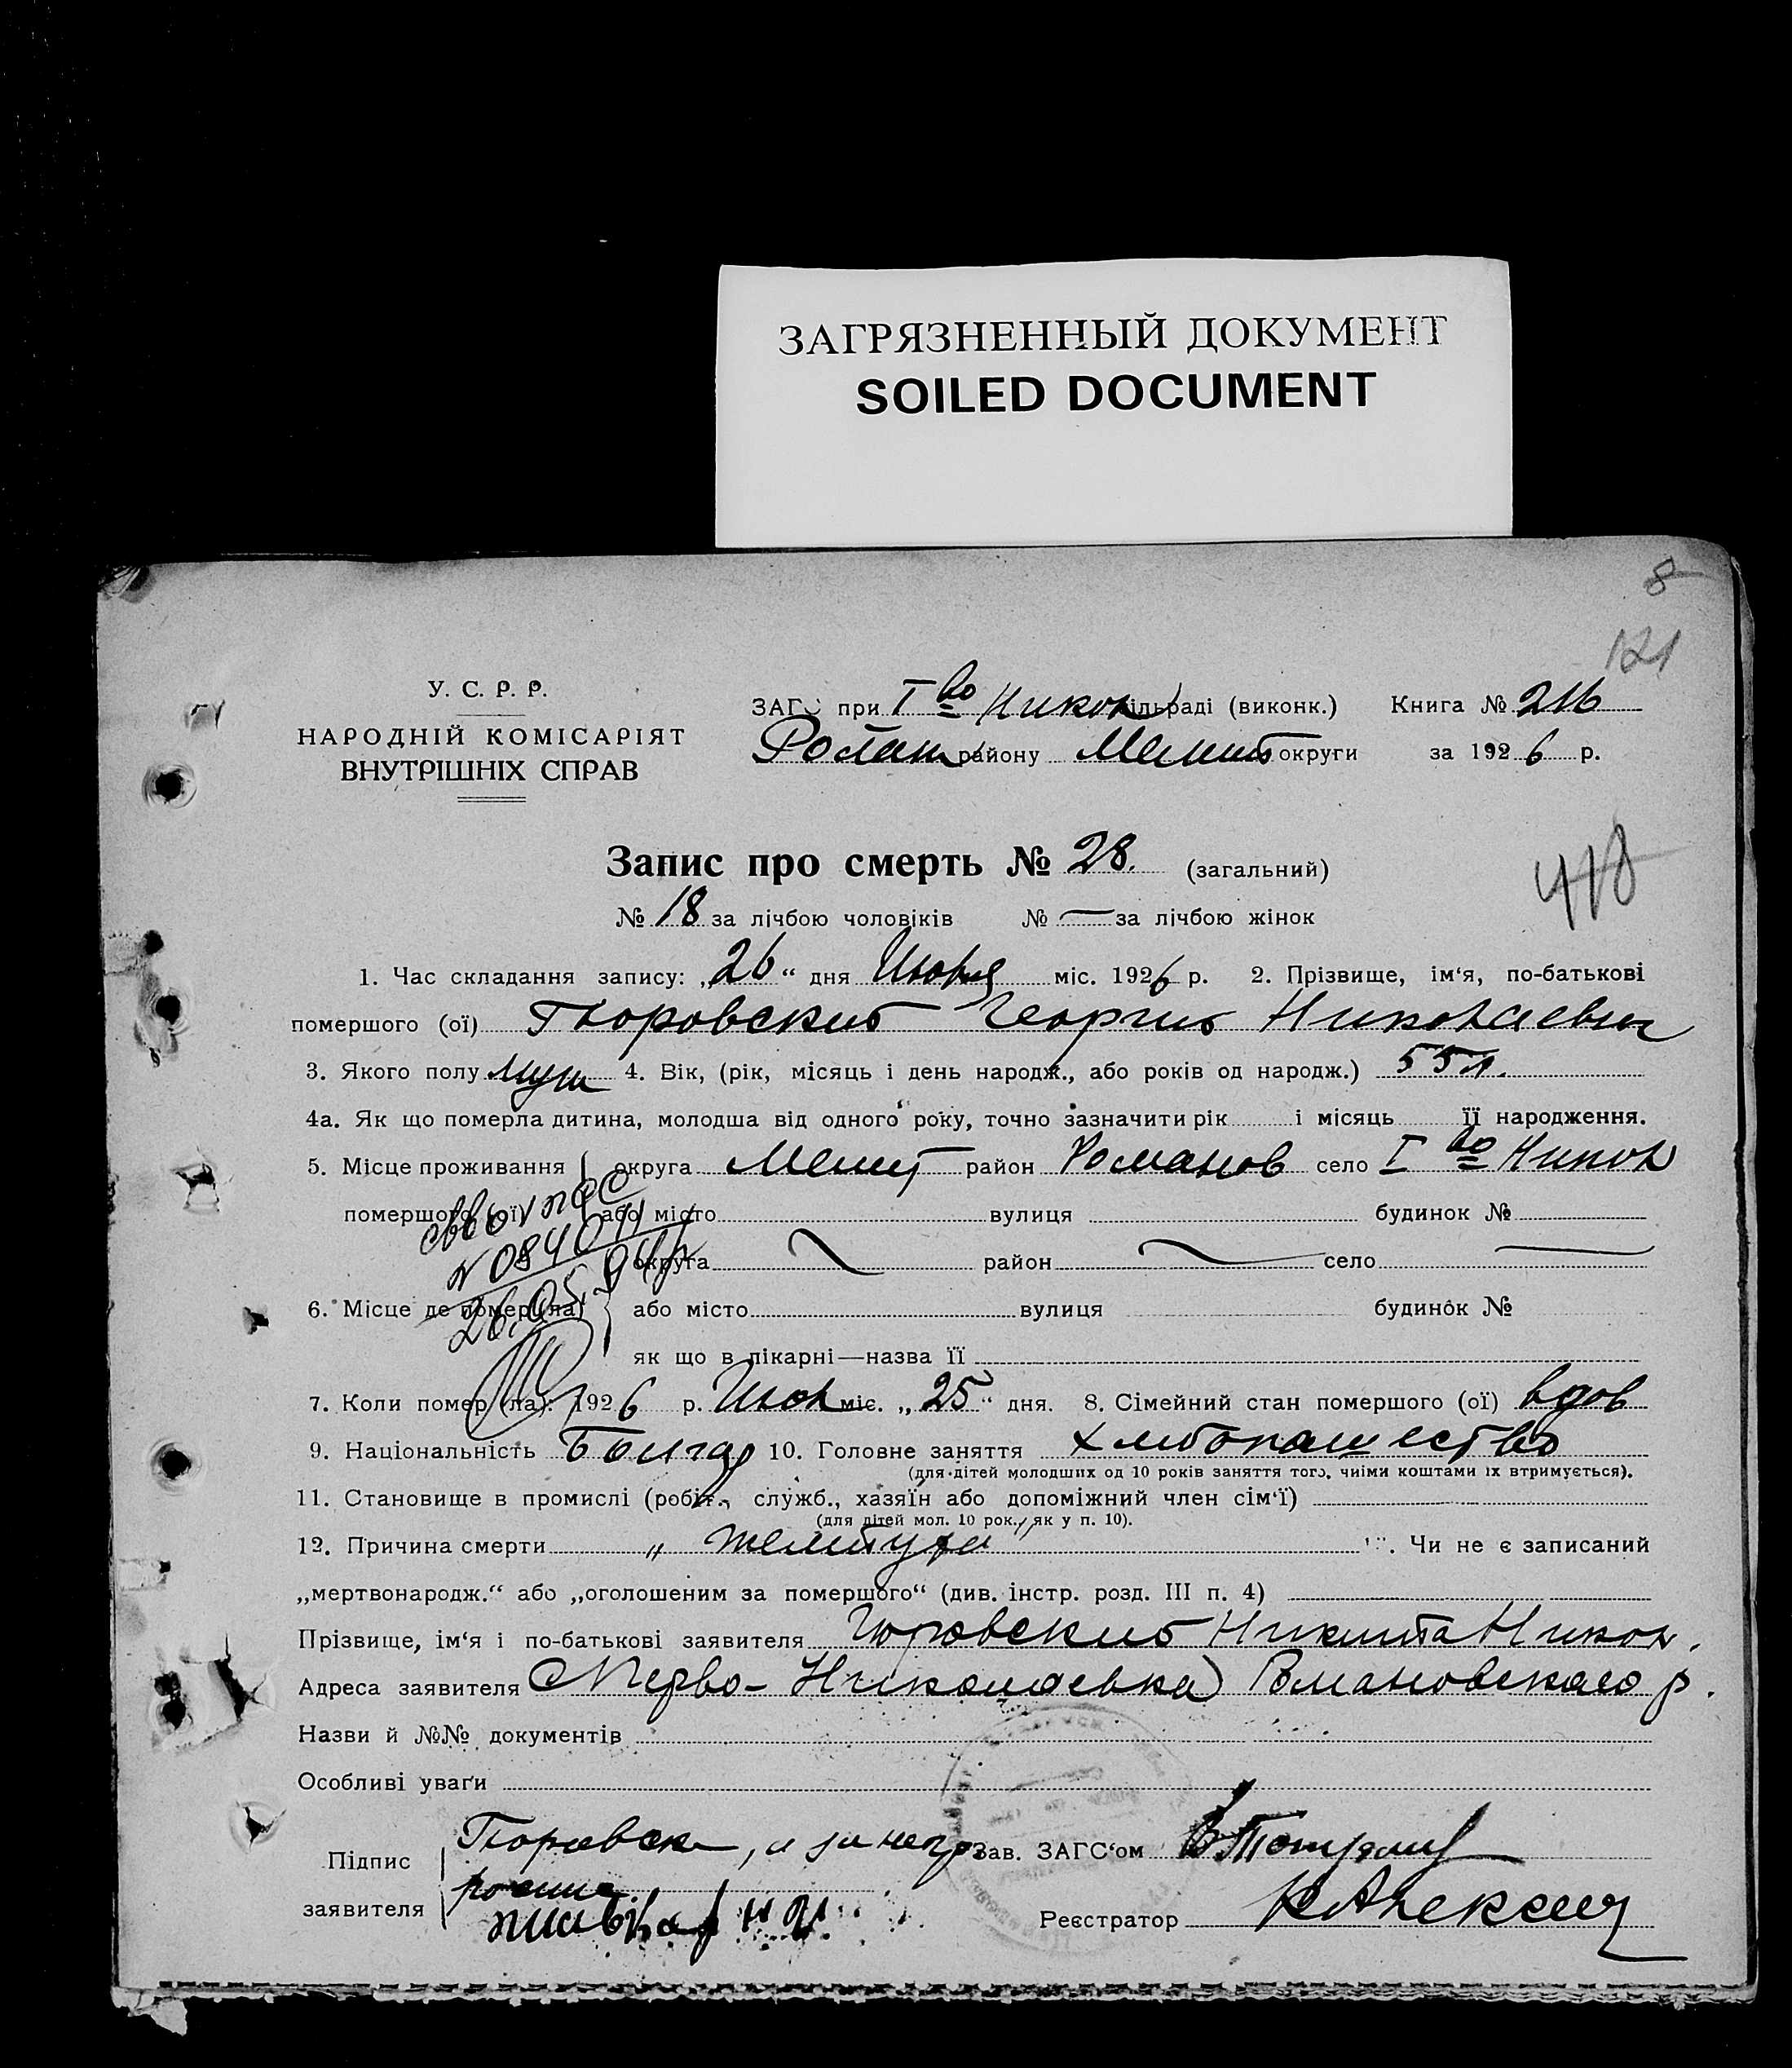 ЗАГРЯЗНЕННЫЙ ДОКУМЕНТ
SOILED DOCUMENT
8
121
У. С. Р. Р.
НАРОДНІЙ КОМІСАРІЯТ
ВНУТРІШНІХ СПРАВ
ЗАГС при Iво Никол сільраді (виконк.) Книга № 216
Роман району Мелит округи за 1926 р.
Запис про смерть № 28. (загальний)
418
№ 18 за лічбою чоловіків № — за лічбою жінок
1. Час складання запису: „26“ дня Июня міс. 1926 р. 2. Прізвище, ім‘я, по-батькові
помершого (ої) Гюровский Георгий Николаевич
3. Якого полу муж 4. Вік, (рік, місяць і день народж., або років од народж.) 55 л.
4а. Як що померла дитина, молодша від одного року, точно зазначити рік і місяць її народження.
5. Місце проживання округа Мелит район Романов село Iво Никол
помершого (ої) або місто вулиця будинок №
№ 084044
округа район село
6. Місце де помер(ла) або місто вулиця будинок №
26.05.
як що в лікарні—назва її
7. Коли помер (ла): 1926 р. Июн міс. „25“ дня. 8. Сімейний стан помершого (ої) вдов
9. Національність Болгар 10. Головне заняття хлебопашество
(для дітей молодших од 10 років заняття того, чиїми коштами їх втримується).
11. Становище в промислі (робіт., служб., хазяїн або допоміжний член сім‘ї)
(для дітей мол. 10 рок., як у п. 10).
12. Причина смерти „желтуха“ . Чи не є записаний
„мертвонародж.“ або „оголошеним за помершого“ (див. інстр. розд. III п. 4)
Прізвище, ім‘я і по-батькові заявителя Гюровский Никита Никол.
Адреса заявителя Перво-Николаевка Романовского р.
Назви й №№ документів
Особливі уваги
Підпис заявителя Гюровск, а за негр
Зав. ЗАГС‘ом
Реєстратор КАлексеев